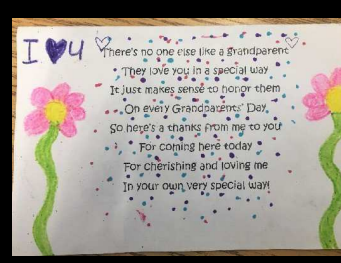 I ♥ U
There's no one else like a grandparent
They love you in a special way
It just makes sense to honor them
On every Grandparents' Day
So here's a thanks from me to you
For coming here today
For cherishing and loving me
In your own very special way!